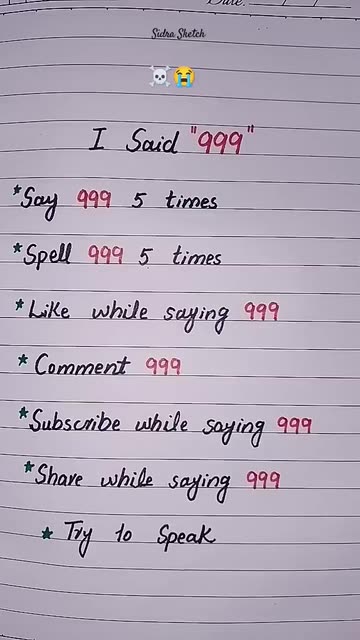 Date:
Sidra Sketch
☠️😭
I Said "999"
*Say 999 5 times
*Spell 999 5 times
*Like while saying 999
*Comment 999
*Subscribe while saying 999
*Share while saying 999
*Try to Speak